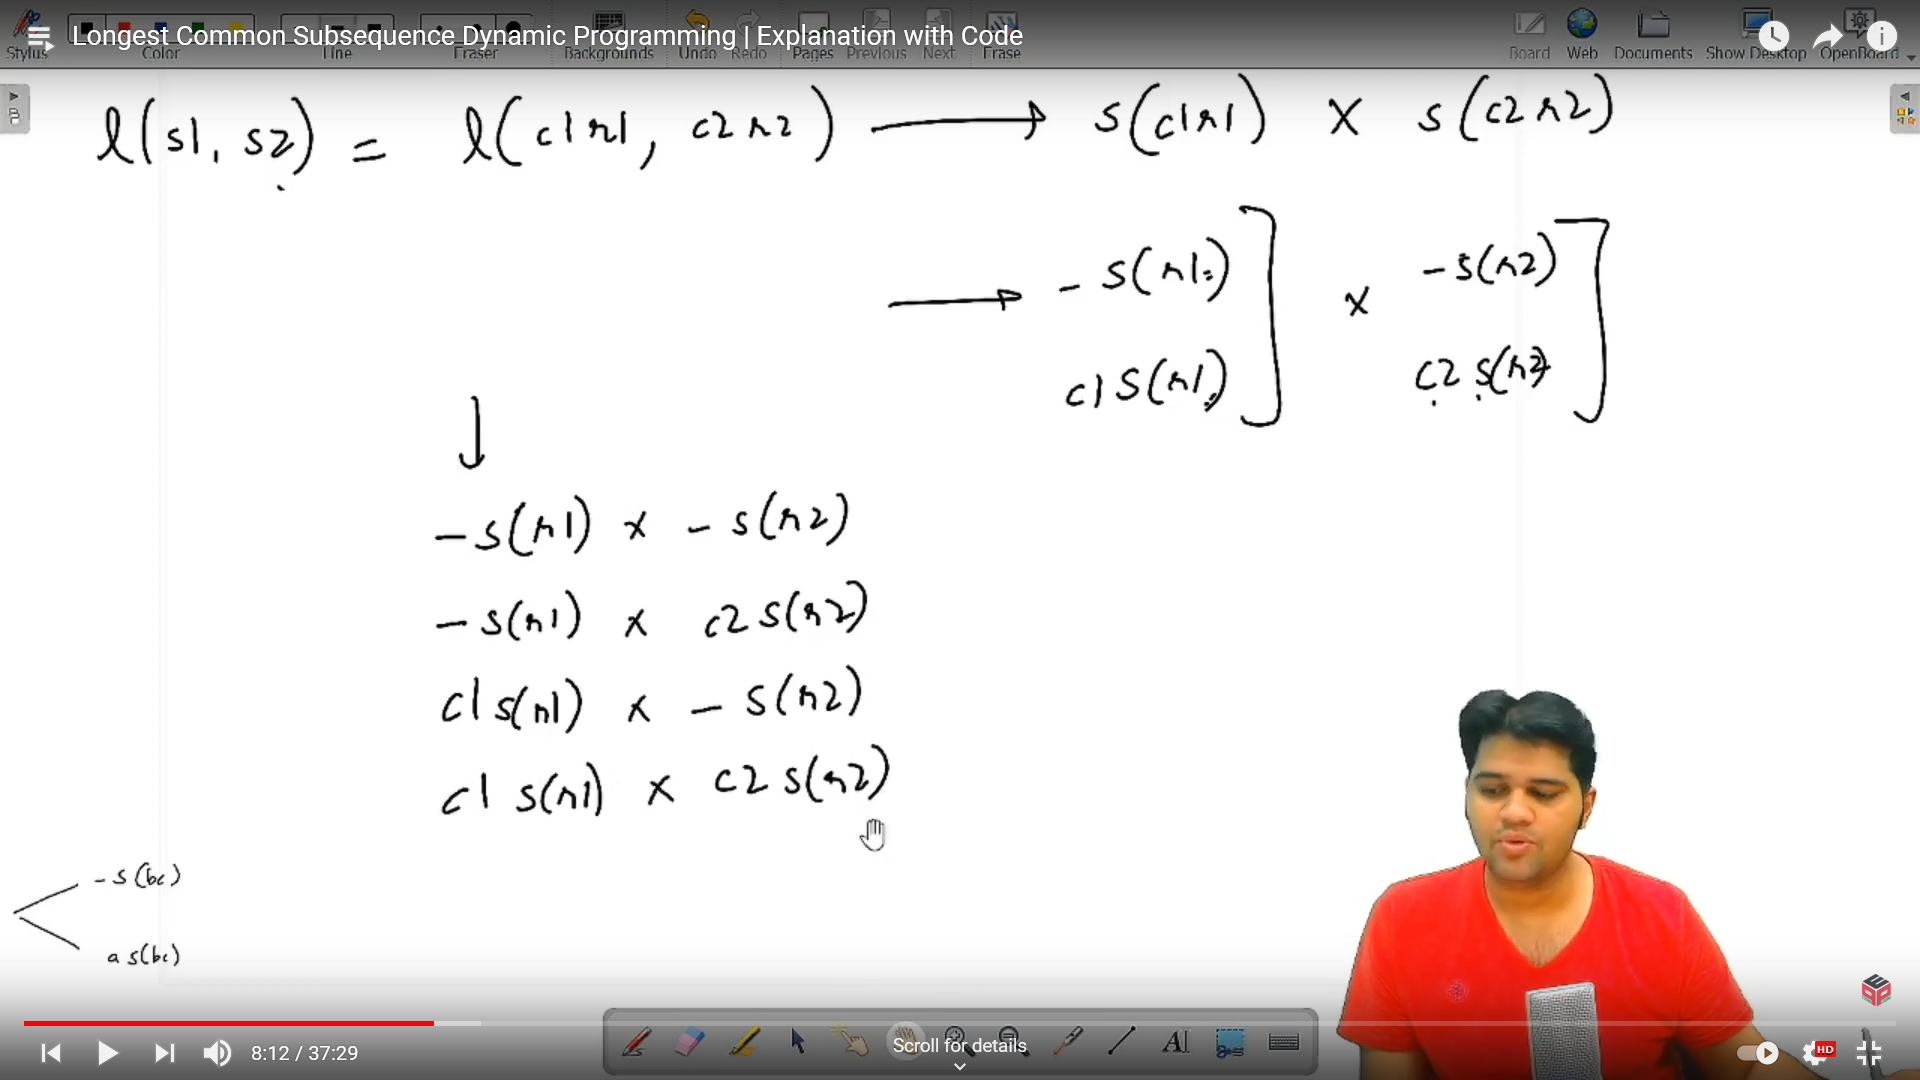 Longest Common Subsequence Dynamic Programming | Explanation with Code
Stylus Color Line Eraser Backgrounds Undo Redo Pages Previous Next Erase Board Web Documents Show Desktop OpenBoard
l(s1, s2) = l(c1r1, c2r2) → s(c1r1) x s(c2r2)
→ - s(r1) x - s(r2)
c1 s(r1) c2 s(r2)
↓
- s(r1) x - s(r2)
- s(r1) x c2 s(r2)
c1 s(r1) x - s(r2)
c1 s(r1) x c2 s(r2)
- s(bc)
a s(bc)
8:12 / 37:29
Scroll for details
AI
HD